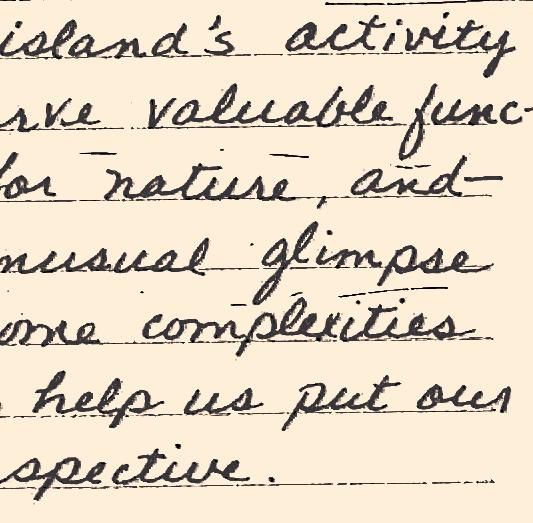 island's activity
rve valuable func-
for nature, and—
nusual glimpse
ome complexities
help us put our
spective.